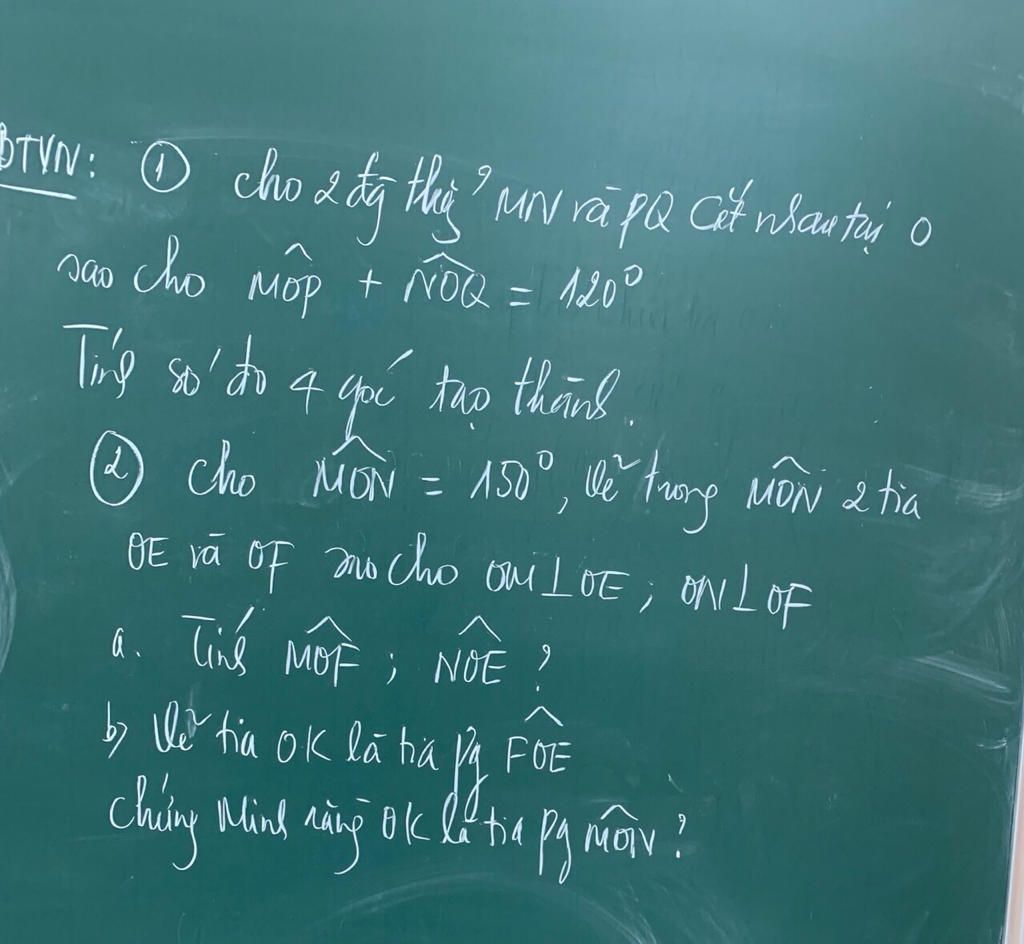 BTVN: ① Cho 2 đg thg MN và PQ cắt nhau tại O
sao cho MÔP + NÔQ = 120°
Tính số đo 4 góc tạo thành.
② Cho MÔN = 150°, vẽ trong MÔN 2 tia
OE và OF sao cho OM⊥OE; ON⊥OF
a. Tính MÔF; NÔE?
b) Vẽ tia OK là tia pg FÔE
Chứng Minh rằng OK là tia pg MÔN?